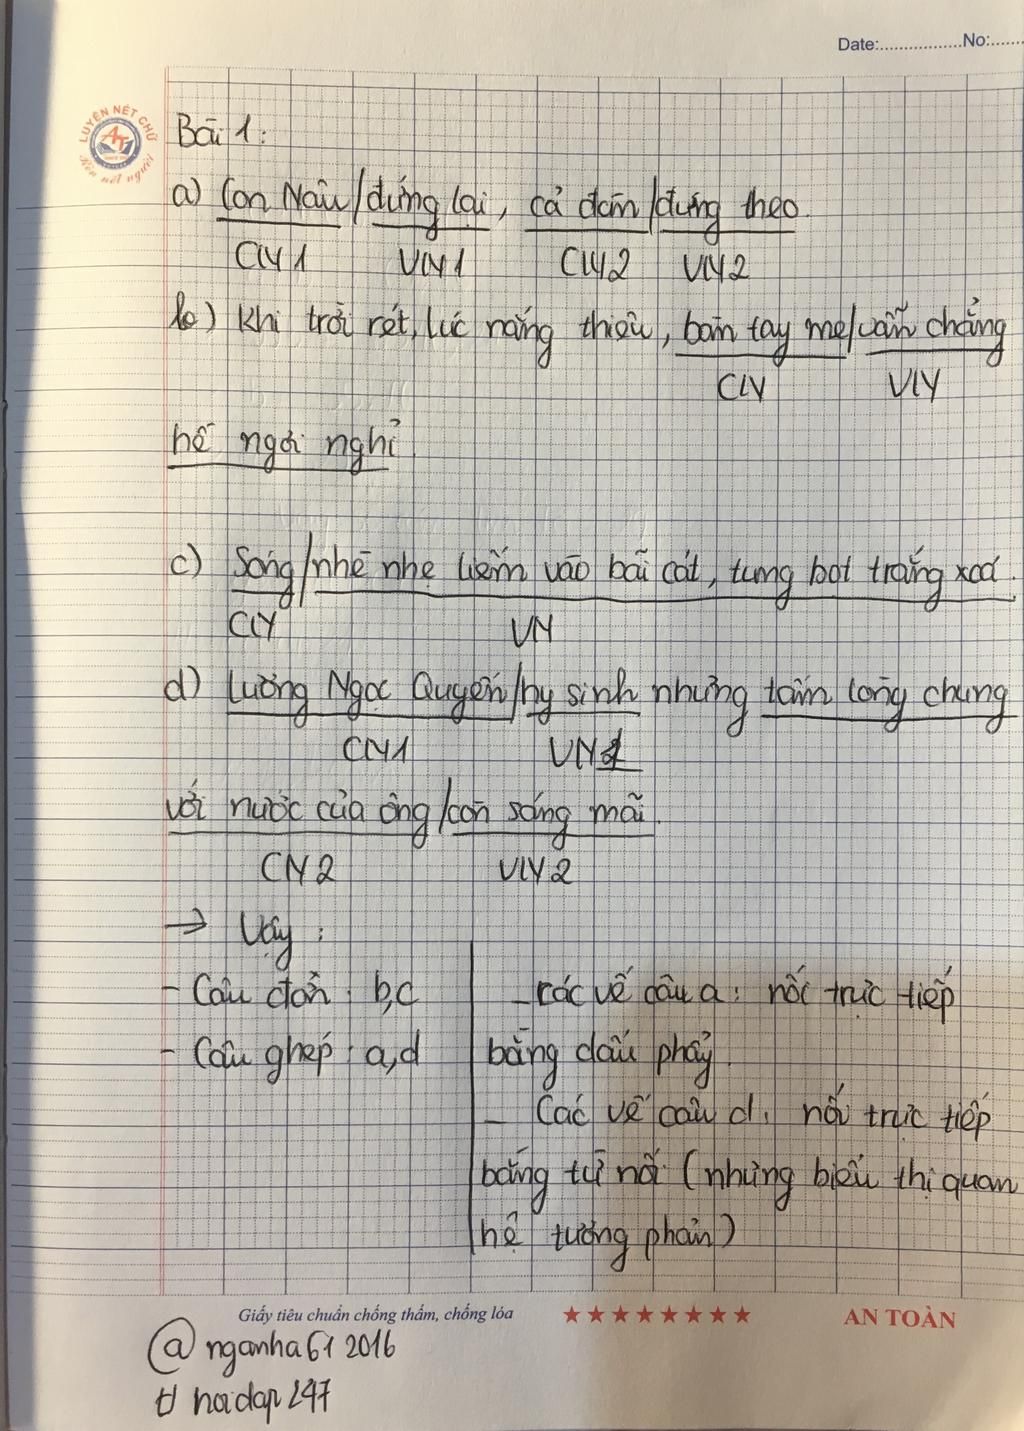 Date:.................No:......
LUYỆN NÉT CHỮ
AT
Rèn nết người
Bài 1:
a) Con Nâu/đứng lại, cả đàn/đứng theo.
CN1 VN1 CN2 VN2
b) Khi trời rét, lúc nắng thiêu, bàn tay mẹ/vẫn chẳng
CN VN
hề ngơi nghỉ.
c) Sóng/nhè nhẹ liếm vào bãi cát, tung bọt trắng xoá.
CN VN
d) Lương Ngọc Quyến/hy sinh nhưng tấm lòng chung
CN1 VN1
với nước của ông/còn sáng mãi.
CN2 VN2
→ Vậy:
- Câu đơn: b,c
- Câu ghép: a,d
- các vế câu a: nối trực tiếp
bằng dấu phẩy.
- Các vế câu d: nối trực tiếp
bằng từ nối (nhưng biểu thị quan
hệ tương phản)
Giấy tiêu chuẩn chống thấm, chống lóa ★★★★★★★★ AN TOÀN
@nganha61 2016
hoidap247